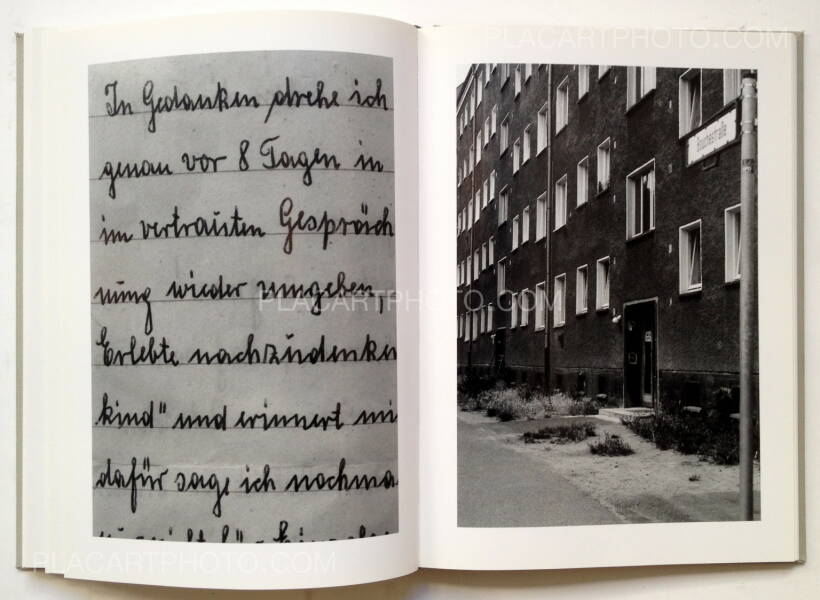 PLACARTPHOTO.COM
In Gedanken drehe ich
genau vor 8 Tagen in
im vertrauten Gespräch
nung wieder umgeben,
Erlebte nachzudenken
kind" und erinnert mi
dafür sage ich nochma
Bouchéstraße
PLACARTPHOTO.COM
PLACARTPHOTO.COM